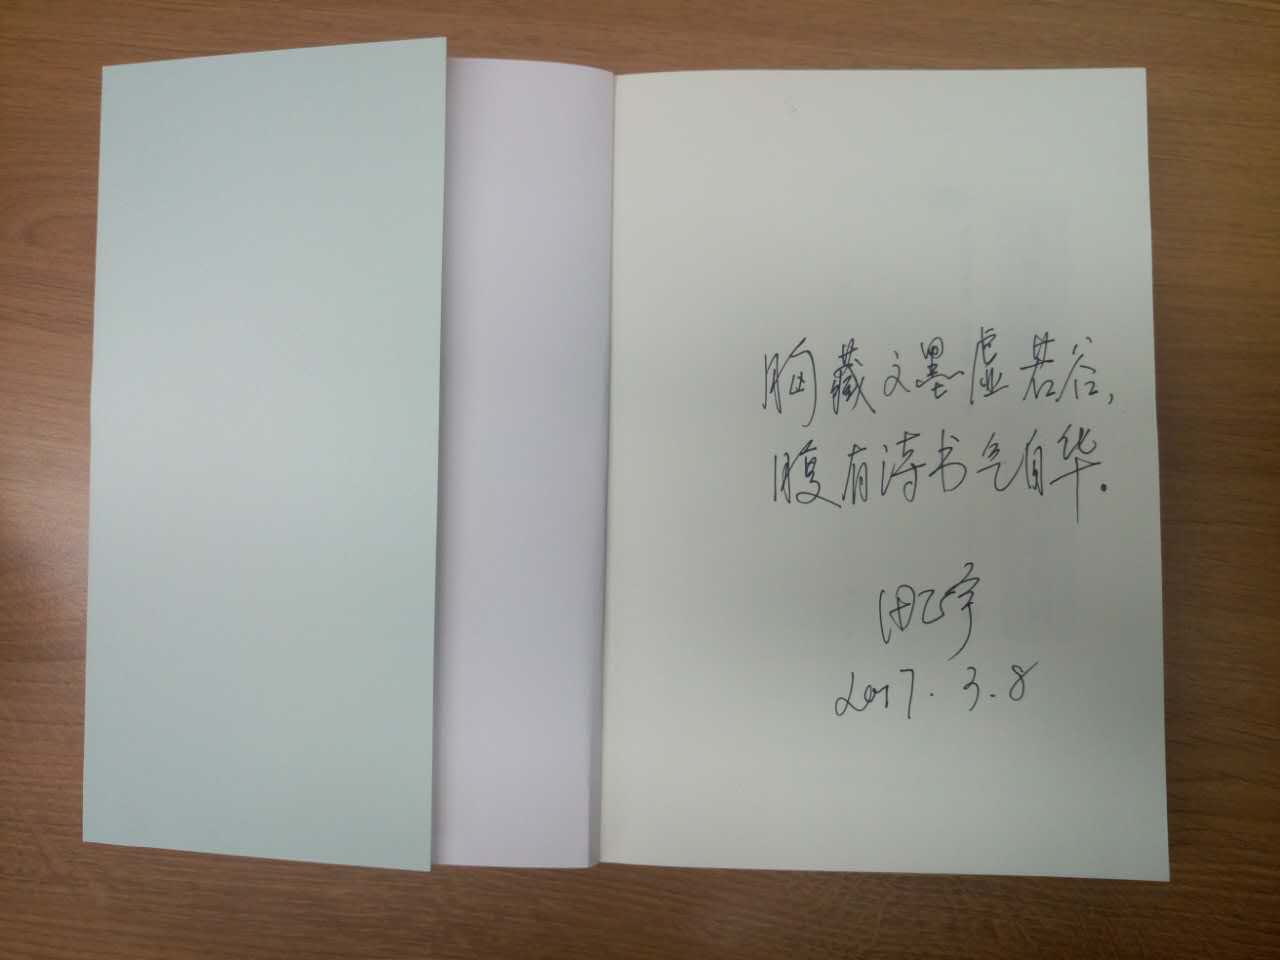 胸藏文墨虚若谷,
腹有诗书气自华.
2017.3.8